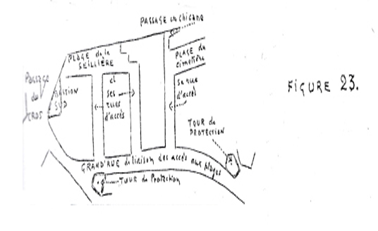 PASSAGE en chicane
PLAGE de la
SEILLIÈRE
PLACE du
cimetière
Passage
du
et
ses
rues
d'accès
sa rue
d'accès
FIGURE 23.
TOUR de
PROTECTION
GRAND'RUE de liaison des accès aux Plages
TOUR de Protection